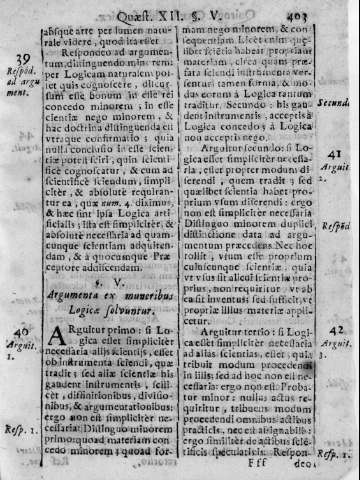 Quæst. XII. §. V. 403
absque arte per lumen natu-
rale videre, quod ita esset.
39
Respõd.
ad argu
ment.
Respondeo ad argumen-
tum, distinguendo minorem:
per Logicam naturalem pot-
est quis cognoscere, discur-
sum esse bonum in esse rei
concedo minorem, in esse
scientiæ nego minorem, &
hac doctrina distinguenda est
utraque confirmatio; quia
nulla conclusio in esse scien-
tiæ potest sciri, quin scienti-
ficè cognoscatur, & cum ad
scientificè sciendum, simpli-
citer, & absolutè requiran-
tur ea, quæ num. 4. diximus,
& hæc sint ipsa Logica arti-
ficialis; ista est simpliciter, &
absolutè necessaria ad quam-
cunque scientiam adquiren-
dam, & à quocunque Præ-
ceptore addiscendam.
§. V.
Argumenta ex muneribus
Logicæ solvuntur.
40
Arguit.
1.
ARguitur primo: si Lo-
gica esset simpliciter
necessaria aliis scientijs, esset
ob instrumenta sciendi, quæ
tradit; sed aliæ scientiæ his
gaudent instrumentis, scili-
cet, diffinitionibus, divisio-
nibus, & argumentationibus:
ergo non est simpliciter ne-
cessaria. Distinguo minorem
Resp. 1.
primo: quo ad materiam con-
cedo minorem; quoad for-
mam nego minorem, & con-
sequentiam. Licet enim que-
libet scientia habeat propriam
materiam, quando scientijs in-
servit tamen forma, & mo-
dus eorum à Logica tantum
traditur. Secundo: his gau-
Secundò
dent instrumentis, acceptis à
Logica concedo; à Logica
non acceptis nego.
41
Arguit.
2.
Arguitur secundo: si Lo-
gica esset simpliciter neces-
saria, esset propter modum dis-
serendi, quem tradit; sed
quælibet scientia habet pro-
prium vsum disserendi: ergo
non est simpliciter necessaria.
Respõd.
Distinguo minorem duplici
distinctione data ad argu-
mentum præcedens. Nec hoc
tollit, vsum esse proprium
cuiuscunque scientiæ: quia
vt vsus sit alicui scientiæ pro-
prius, non requiritur, vt ab
ea sit inventus: sed sufficit, vt
propriæ illius materiæ appli-
cetur.
42
Arguit.
3.
Arguitur tertio: si Logica
esset simpliciter necessaria
ad alias scientias, esset, quia
tribuit modum procedendi
in illis; sed ad hoc non est ne-
cessaria: ergo non est. Proba-
tur minor: nullus actus re-
quiritur, tribuens modum
procedendi omnibus actibus
practicis, nec est assignabilis:
ergo similiter de actibus scie-
tificis speculativis. Respon-
Resp. 1.
Fff deo,